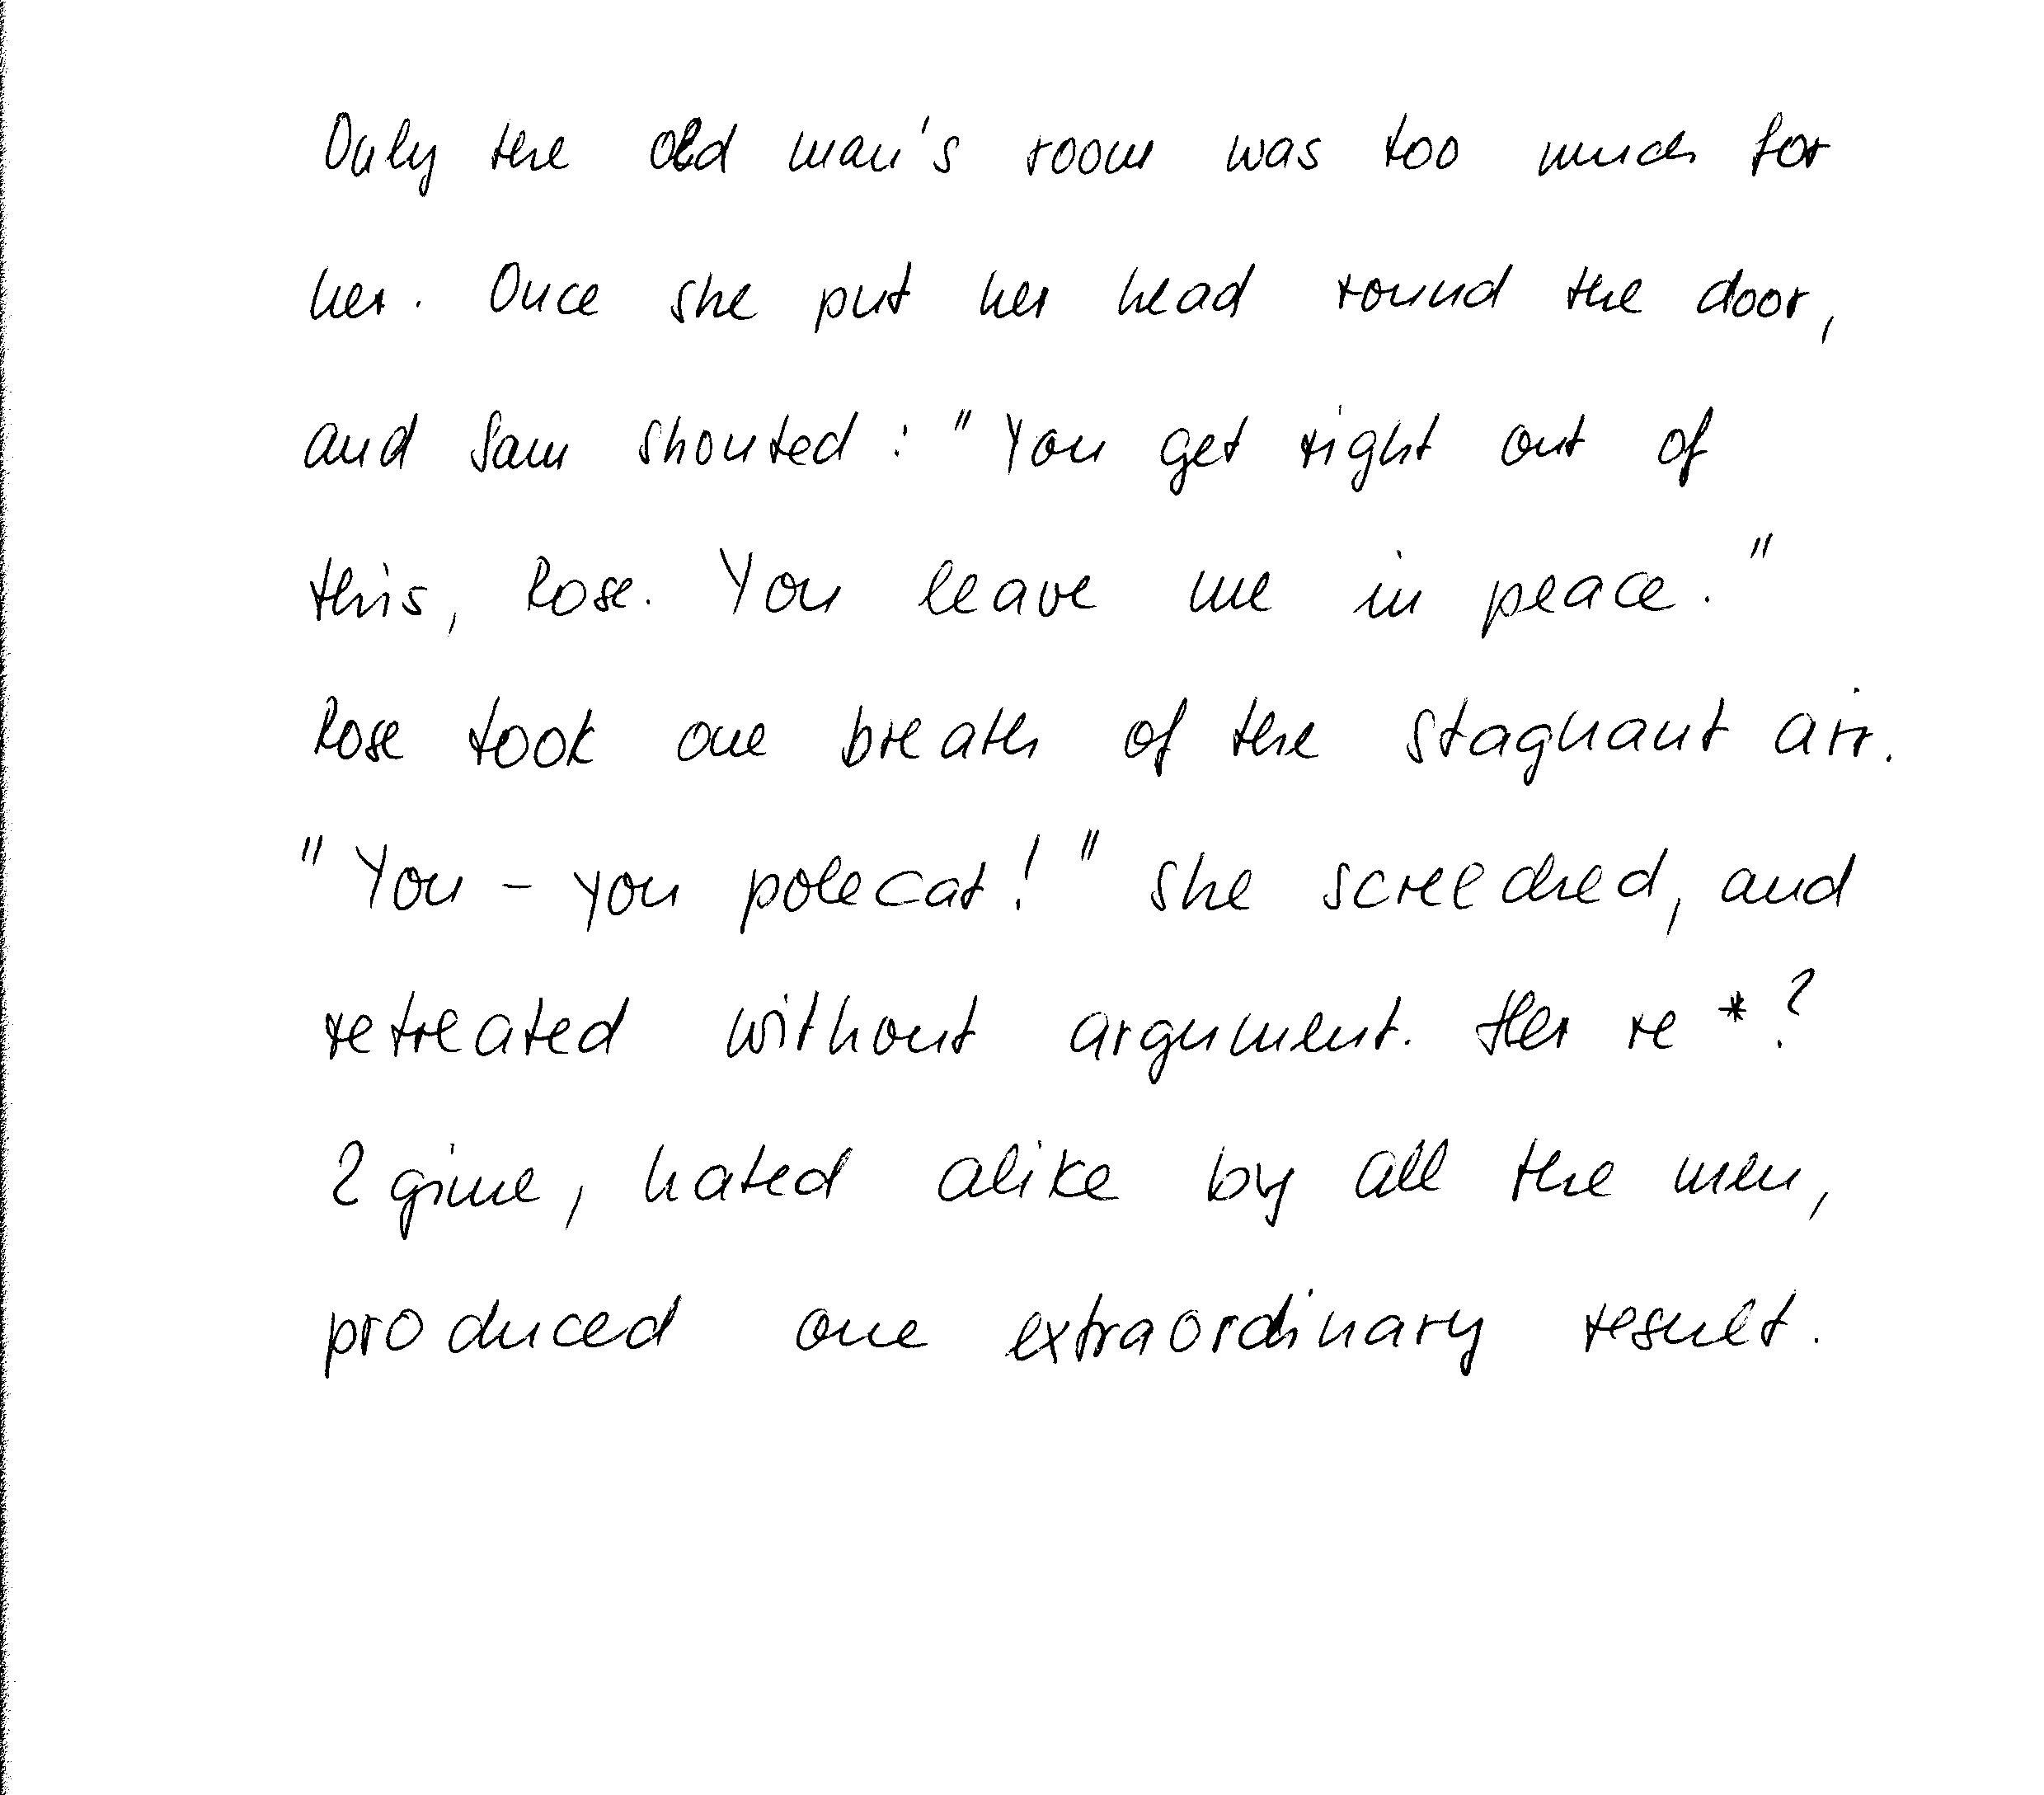 Only the old man's room was too much for
her. Once she put her head round the door,
and Sam shouted: "You get right out of
this, Rose. You leave me in peace."
Rose took one breath of the stagnant air.
"You - you polecat!" she screeched, and
retreated without argument. Her re *?
2 gime, hated alike by all the men,
produced one extraordinary result.